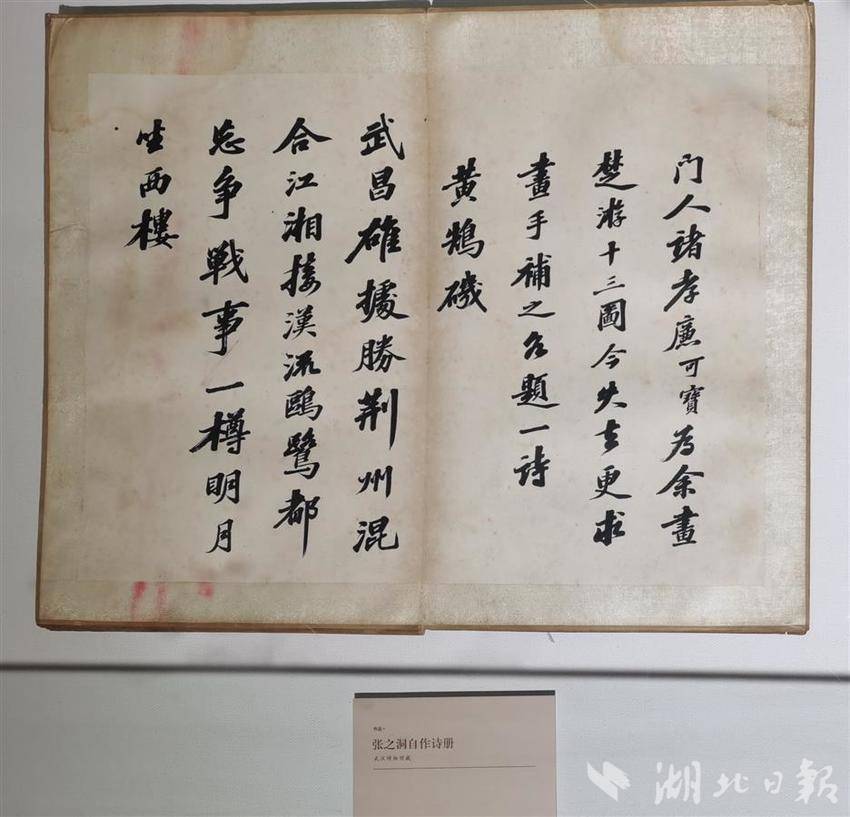 門人諸孝廉可寶為余畫
楚游十三圖今失去更求
畫手補之各題一詩
黃鵠磯
武昌雄據勝荆州混
合江湘接漢流鷗鷺都
忘爭戰事一樽明月
坐西樓
作品
张之洞自作诗册
武汉博物馆藏
湖北日報